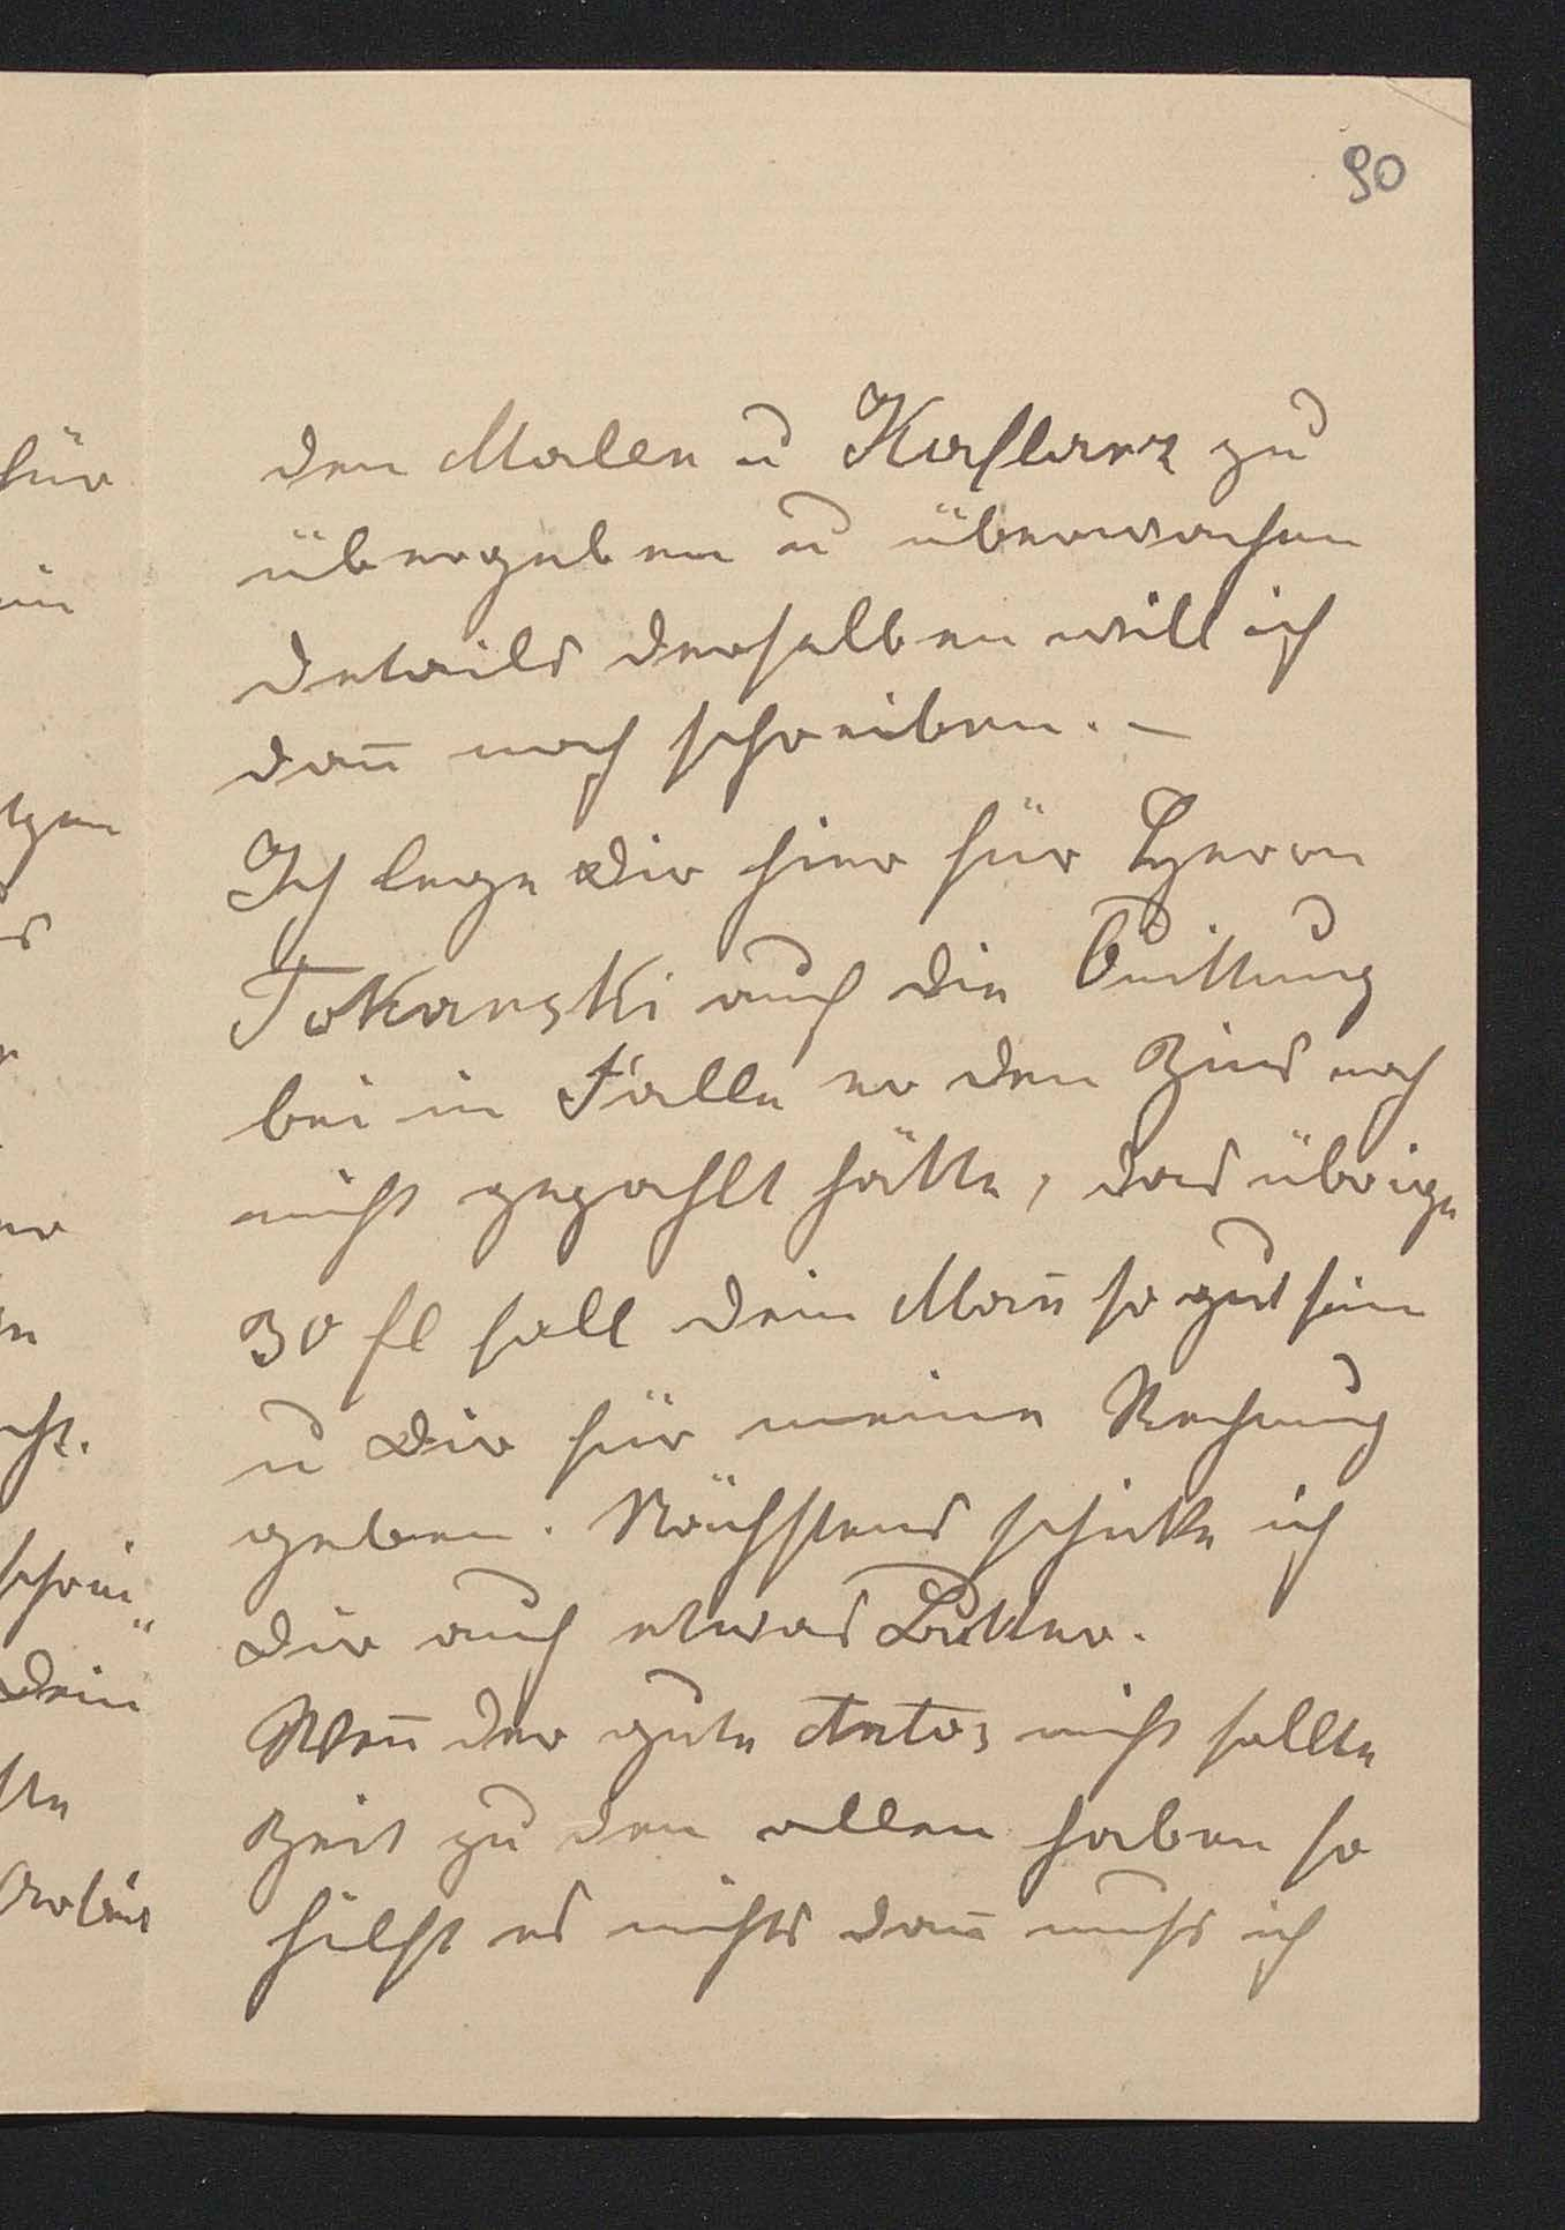 90
den Malern u Kaflarz zu
übergeben u überwachen
details derselben will ich
dan̅ noch schreiben. –
Ich lege Dir hier für Herrn
Tokarski auch die Quittung
bei im Falle er den Zins noch
nicht gezahlt hätte, das übrige
30 fl soll dein Man̅ so gut sein
u Dir für meine Rechnung
geben. Nächstens schicke ich
Dir auch etwas Butter.
Wen̅ der gute Antoś nicht sollte
Zeit zu den allen haben so
hilft es nichts dan̅ muss ich
für
tzen
cht.
schrei„
Dein